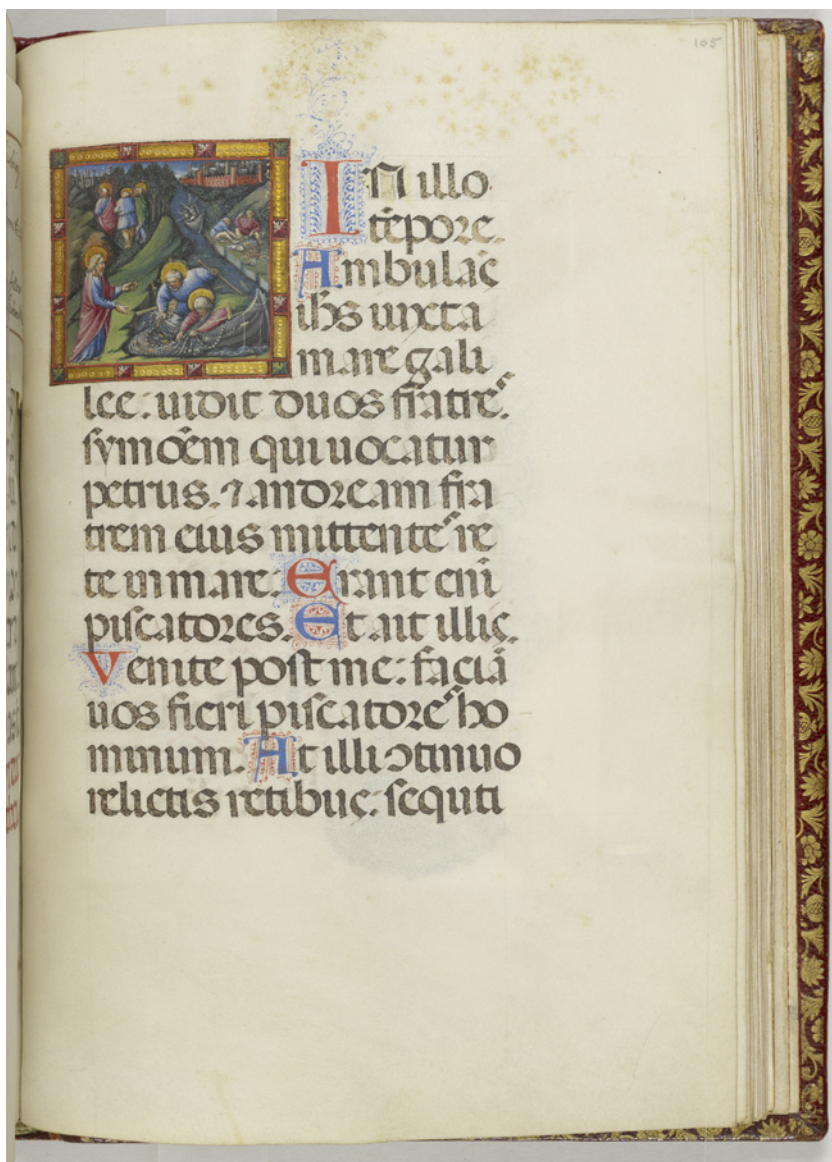 105
In illo
tēpore.
Ambulās
ihs iuxta
mare gali
lee: uidit duos fratres.
symōem qui uocatur
petrus. ⁊ andream fra
trem eius mittentes re
te in mare. Erant eni
piscatores. Et ait illis.
Venite post me: faciā
uos fieri piscatores ho
minum. At illi ↄtinuo
relictis retibus: sequti